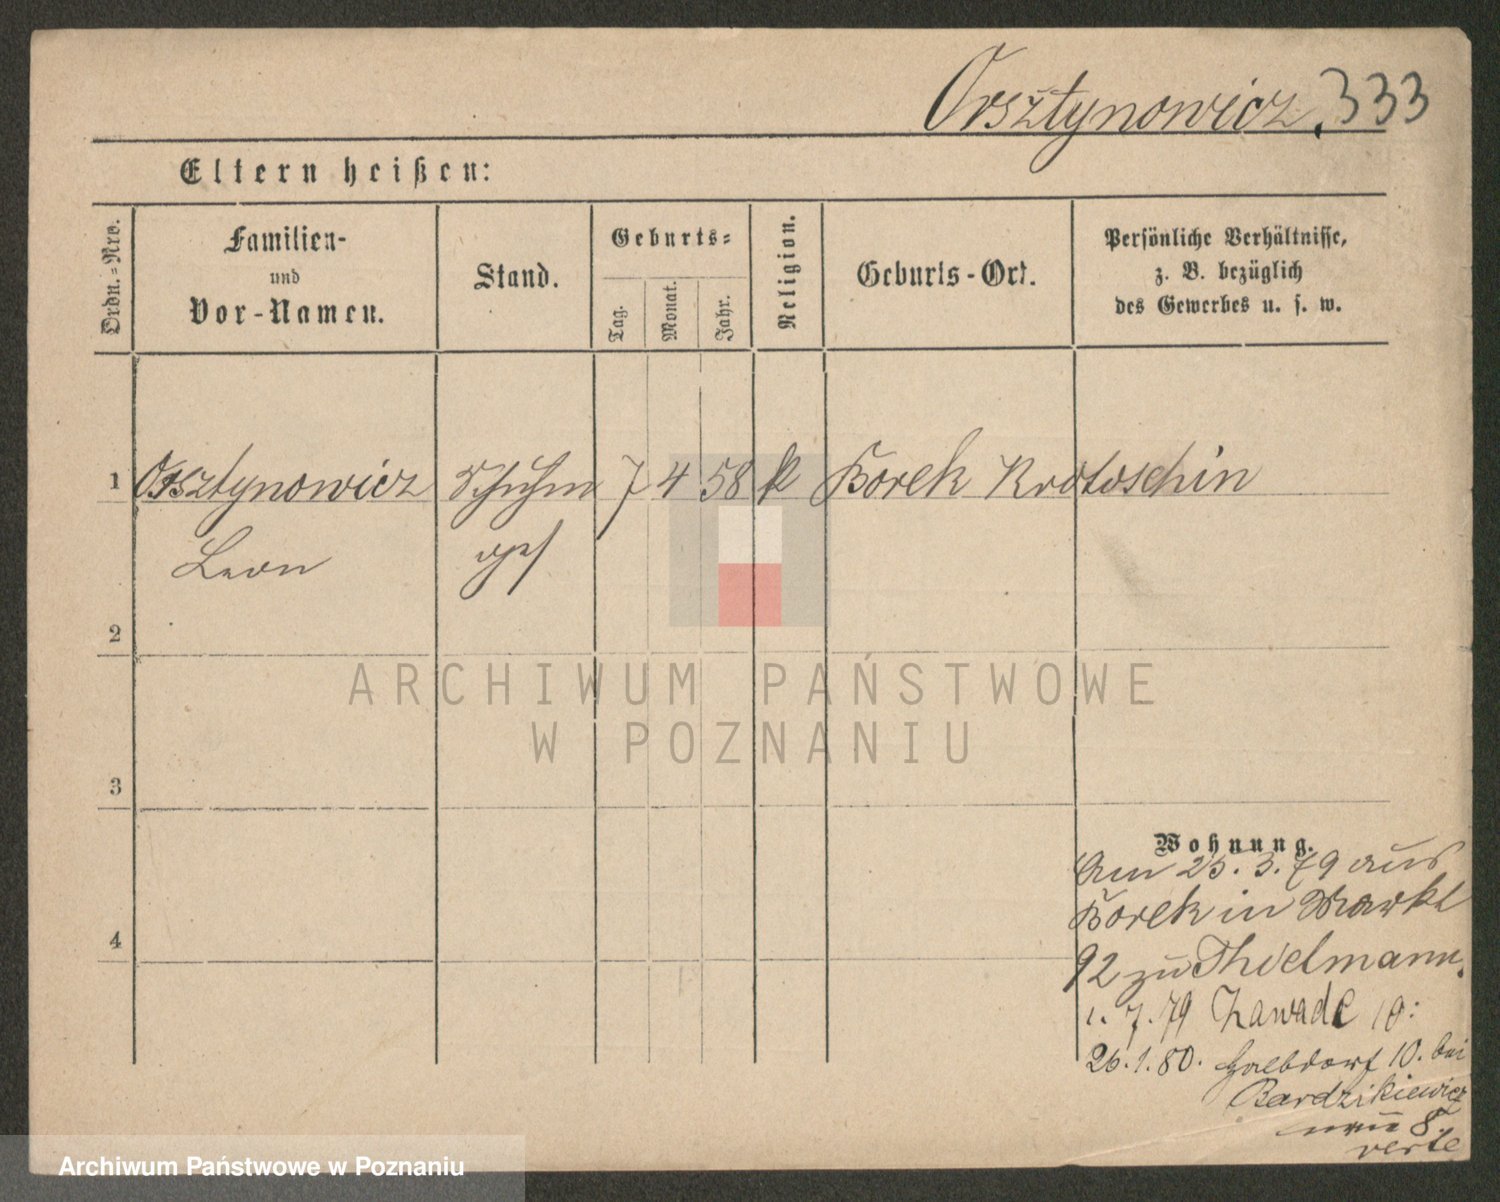 Orsztynowicz, 333
Eltern heißen:
Ordn.=Nro.
Familien-
und
Vor-Namen.
Stand.
Geburts=
Tag.
Monat.
Jahr.
Religion.
Geburts-Ort.
Persönliche Verhältnisse,
z. B. bezüglich
des Gewerbes u. s. w.
1 Orsztynowicz Schuhm 7 4 58 k Borek Krotoschin
Leon
2
ARCHIWUM PAŃSTWOWE
W POZNANIU
3
Wohnung.
Am 25. 3. 79 aus
Borek in Markt
92 zu Thielmann.
4
1. 7. 79 Zawade 10:
26. 1. 80. Halbdorf 10. bei
Bardzikiewicz
8.
verte
Archiwum Państwowe w Poznaniu